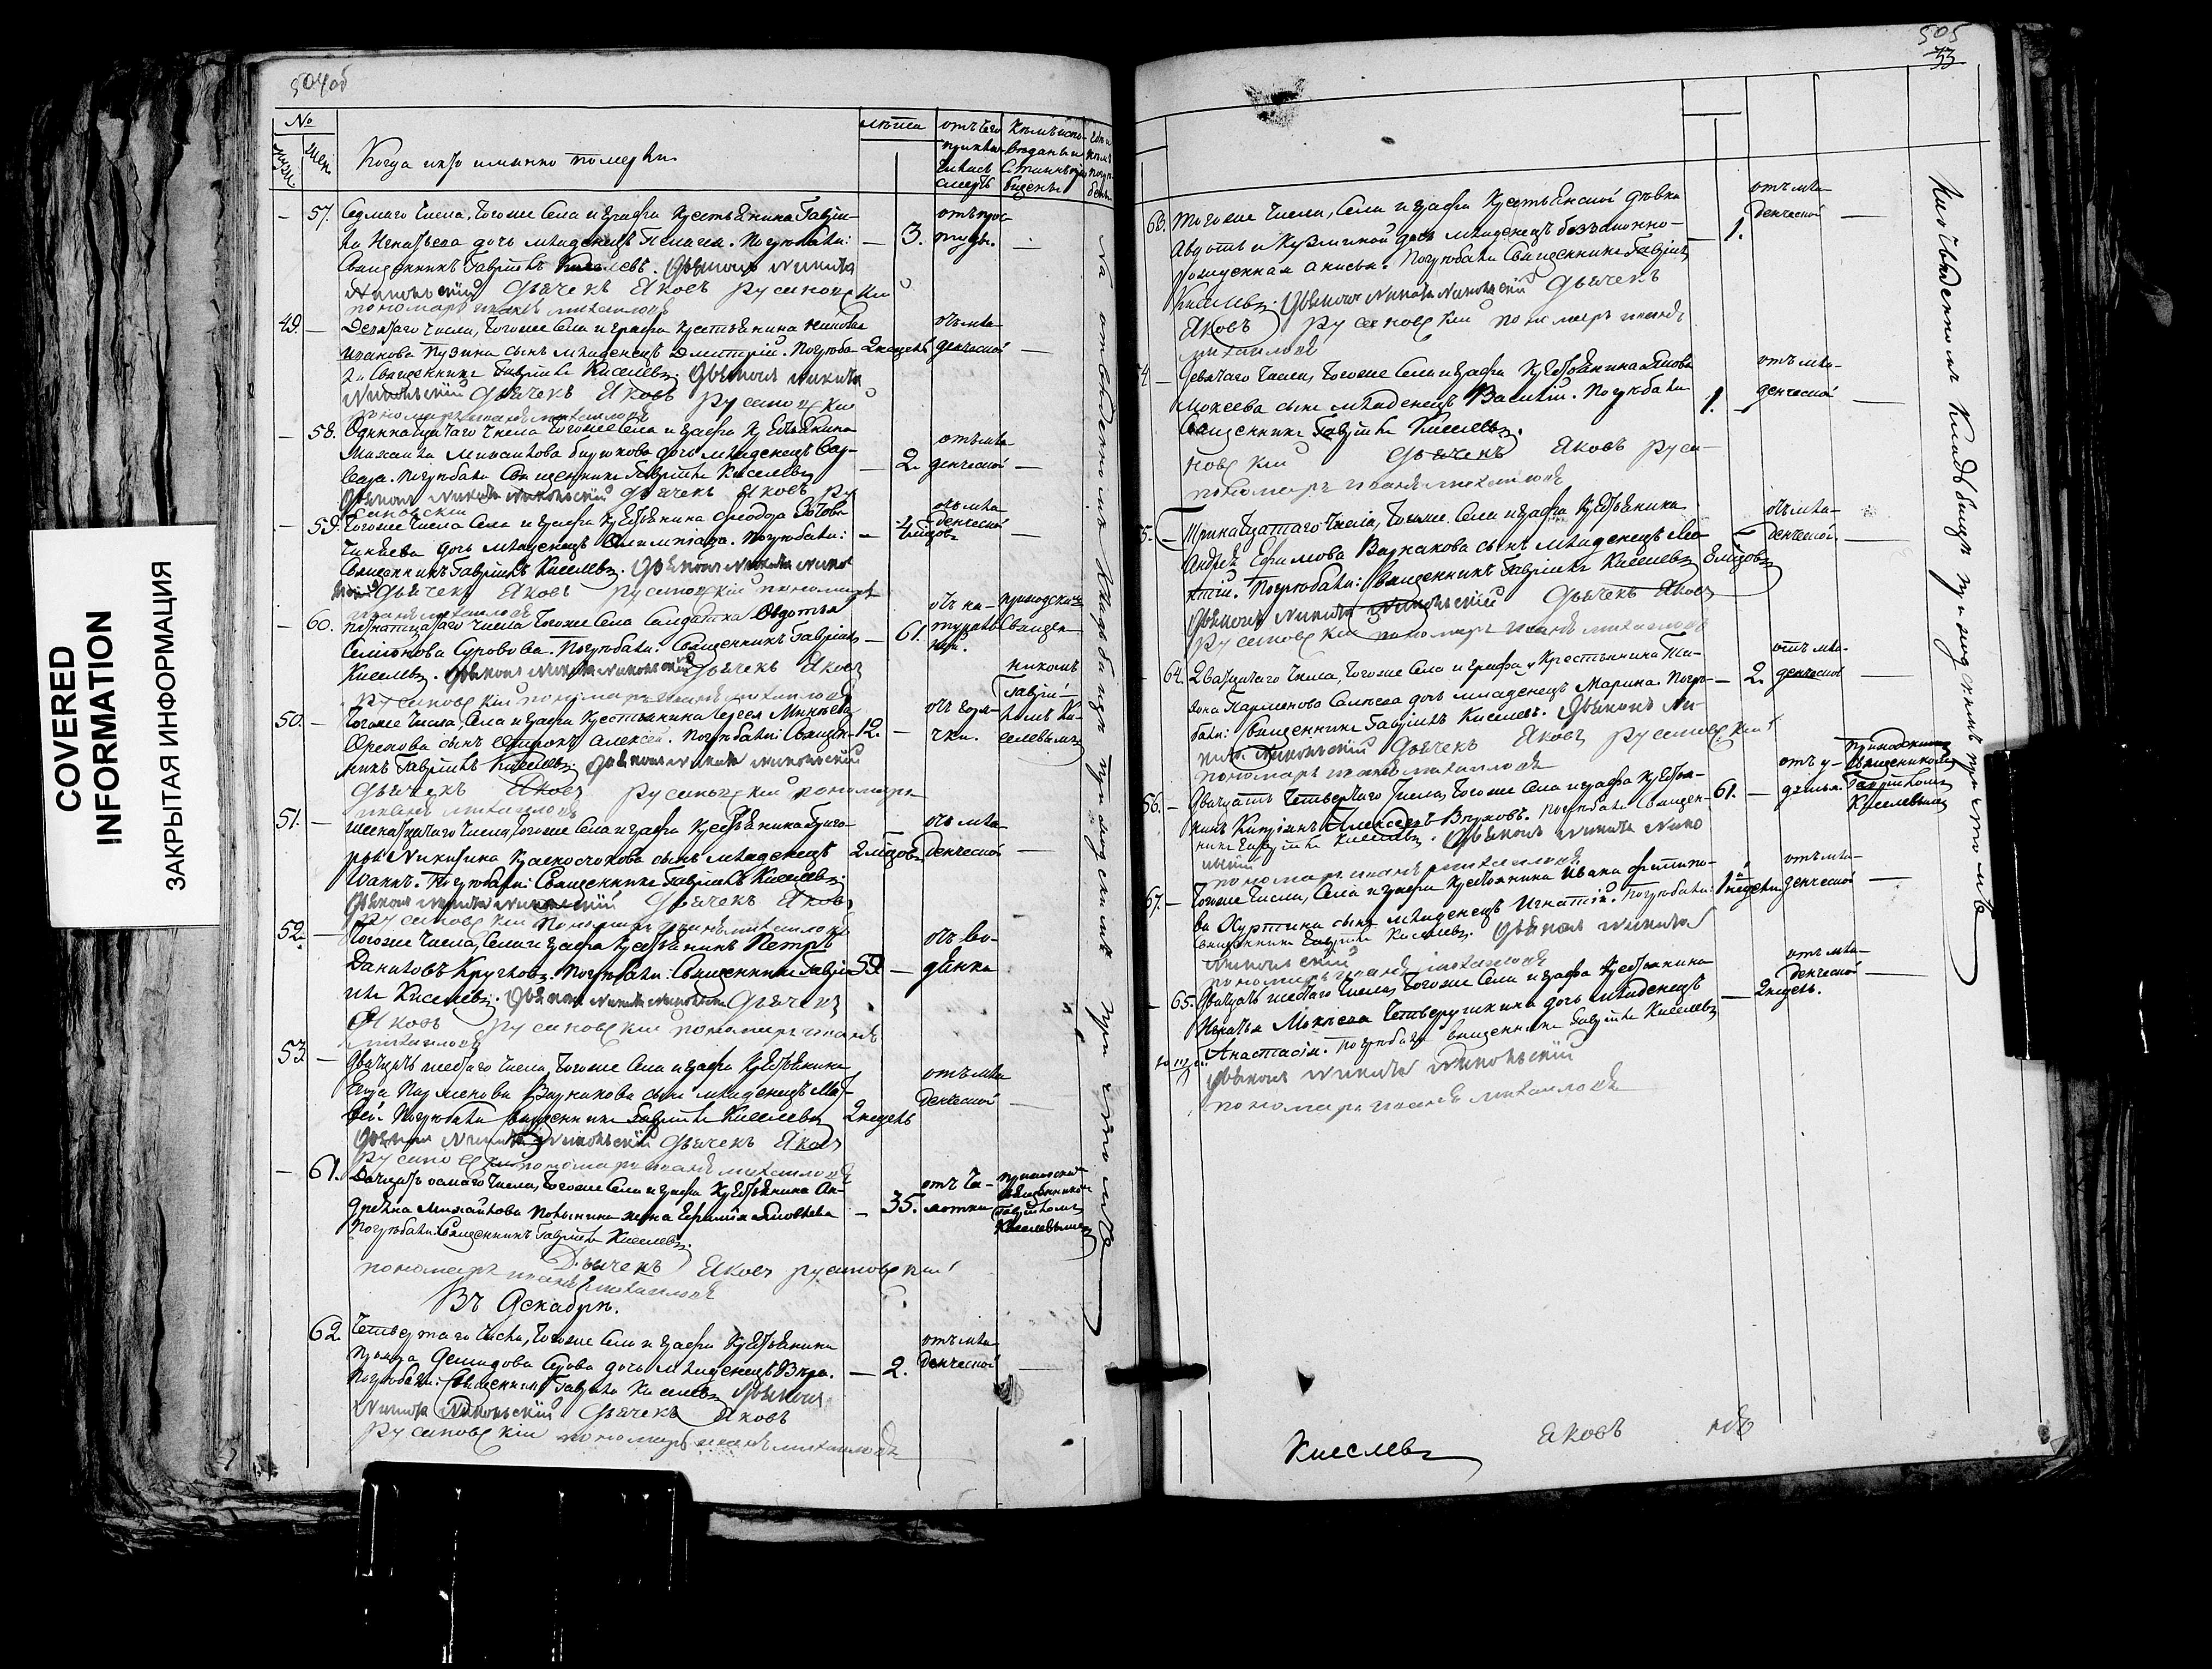 COVERED
INFORMATION
ЗАКРЫТАЯ ИНФОРМАЦИЯ
504об
№
Муж.
Жен.
Когда и кто именно померъ
лѣта
отъ чего
приклю-
чилась
смерть
Кѣмъ испо-
вѣданы и
57. Седмаго числа, тогоже села и графа крестьянина Гаврі-
ла Игнатьева дочь младенецъ Пелагея. Погребали:
Священникъ Гавріилъ Киселевъ. Діаконъ Никита
Никольскій Дьячекъ Яковъ Русановскій
пономарь Иванъ Михаиловъ
3.
отъ прос-
туды.
49. Девятаго числа, тогоже села и графа крестьянина
Иванова Пузина сынъ младенецъ Димитрій. Погреба
ли Священникъ Гавріилъ Киселевъ. Діаконъ Никита
Никольскій Дьячекъ Яковъ Русановскій
пономарь Иванъ Михаиловъ
2 недѣль
отъ мла-
денческой
58. Одиннатцатаго числа тогоже села и графа крестьянина
Михаила Михаилова Бирюкова дочь младенецъ Вар-
вара. Погребали Священникъ Гавріилъ Киселевъ
Діаконъ Никита Никольскій Дьячекъ Яковъ Ру
сановскій
2.
отъ мла
денческой
59. Тогоже числа села и графа крестьянина Феодора
дочь младенецъ Олимпіада. Погребали:
Священникъ Гавріилъ Киселевъ. Діаконъ Никита Николь
скій Дьячекъ Яковъ Русановскій пономарь
Иванъ Михаиловъ
4 мѣсяцовъ
отъ мла-
денческой
60. Пятнатцатаго числа тогоже села солдатка Авдотья
Семіонова Сурова. Погребали: Священникъ Гавріилъ
Киселевъ. Діаконъ Никита Никольскій Дьячекъ Яковъ
Русановскій пономарь Иванъ Михаиловъ
61.
отъ на-
туральной
приходскимъ
Священ-
никомъ
Гаврі-
иломъ Ки-
селевымъ
50. Тогоже числа, села и графа крестьянина Сергея Минаева
Орехова сынъ отрокъ Алексей. Погребали: Священ-
никъ Гавріилъ Киселевъ. Діаконъ Никита Никольскій
Дьячекъ Яковъ Русановскій пономарь
Иванъ Михаиловъ
12.
отъ горя-
чки.
51. Шеснатцатаго числа, тогоже села и графа крестьянина Григо-
рья Никитина сынъ младенецъ
Іоаннъ. Погребали: Священникъ Гавріилъ Киселевъ.
Діаконъ Никита Никольскій Дьячекъ Яковъ
Русановскій пономарь Иванъ Михаиловъ
2 мѣсяцовъ
отъ мла-
денческой
52. Тогоже числа, села и графа крестьянинъ Петръ
Даниловъ Кругловъ. Погребали: Священникъ Гаврі-
илъ Киселевъ. Діаконъ Никита Никольскій Дьячекъ
Яковъ Русановскій пономарь Иванъ
Михаиловъ
59
отъ во-
дянки
53. Двадцать шестаго числа, тогоже села и графа крестьянина
Егора Парменова Варнакова сынъ младенецъ Мат-
вей. Погребали Священникъ Гавріилъ Киселевъ
Діаконъ Никита Никольскій Дьячекъ Яковъ
Русановскій пономарь Иванъ Михаиловъ
2 недѣль
отъ мла
денческой
61. Двадцать осмаго числа, тогоже села и графа крестьянина Ан-
дреяна Михайлова жена Ефимія Яковлева
Погребали: Священникъ Гавріилъ Киселевъ.
Дьячекъ Яковъ Русановскій
пономарь Иванъ Михаиловъ
35.
отъ ча-
хотки
приходскимъ
священникомъ
Гавріиломъ
Киселевымъ
Въ Декабрѣ.
62. Четвертаго числа, тогоже села и графа крестьянина
Демидова дочь младенецъ Вѣра.
Погребали: Священникъ Гавріилъ Киселевъ Діаконъ
Никита Никольскій Дьячекъ Яковъ
Русановскій пономарь Иванъ Михаиловъ
2.
отъ мла-
денческой
На отведенномъ кладбищѣ приходскомъ при
505
33
63. Тогоже числа, села и графа крестьянской дѣвки
Авдотьи Кузминой дочь младенецъ беззаконно-
рожденная Анисья. Погребали Священникъ Гавріилъ
Киселевъ. Діаконъ Никита Никольскій Дьячекъ
Яковъ Русановскій пономарь Иванъ
Михаиловъ
1.
отъ мла-
денческой
4 Девятаго числа, тогоже села и графа крестьянина Якова
Мокеева сынъ младенецъ Василій. Погребали
Священникъ Гавріилъ Киселевъ.
Дьячекъ Яковъ Руса-
новскій
пономарь Иванъ Михаиловъ
1.
отъ мла-
денческой
5. Тринатцатаго числа, тогоже села и графа крестьянина
Андрея Ефимова Варнакова сынъ младенецъ Лео-
нтій. Погребали: Священникъ Гавріилъ Киселевъ
Діаконъ Никита Никольскій Дьячекъ Яковъ
Русановскій пономарь Иванъ Михаиловъ
8 мѣсяцовъ
отъ мла-
денческой
64. Двадцатаго числа, тогоже села и графа крестьянина
Парменова дочь младенецъ Марина. Погре-
бали: Священникъ Гавріилъ Киселевъ. Діаконъ Ни-
кита Никольскій Дьячекъ Яковъ Русановскій
пономарь Иванъ Михаиловъ
2.
отъ мла-
денческой
56. Двадцать четвертаго числа, тогоже села и графа крестья-
нинъ Алексеевъ. Погребали Священ-
никъ Гавріилъ Киселевъ. Діаконъ Никита Николь
скій
пономарь Иванъ Михаиловъ
61.
отъ у-
душья.
приходскимъ
священникомъ
Гавріиломъ
Киселевымъ
67. Тогоже числа, села и графа крестьянина Ивана Филипо-
ва Куртина сынъ младенецъ Игнатій. Погребали:
Священникъ Гавріилъ Киселевъ. Діаконъ Никита
Никольскій
пономарь Иванъ Михаиловъ
1 недѣли
отъ мла-
денческой
65. Двадцать шестаго числа, тогоже села и графа крестьянина
Игнатья Мокѣева Четверушкина дочь младенецъ
Анастасія. Погребали Священникъ Гавріилъ Киселевъ
Діаконъ Никита Никольскій
пономарь Иванъ Михаиловъ
2 недѣль.
отъ мла-
денческой
На отведенномъ кладбищѣ приходскомъ при
Киселевъ
Яковъ